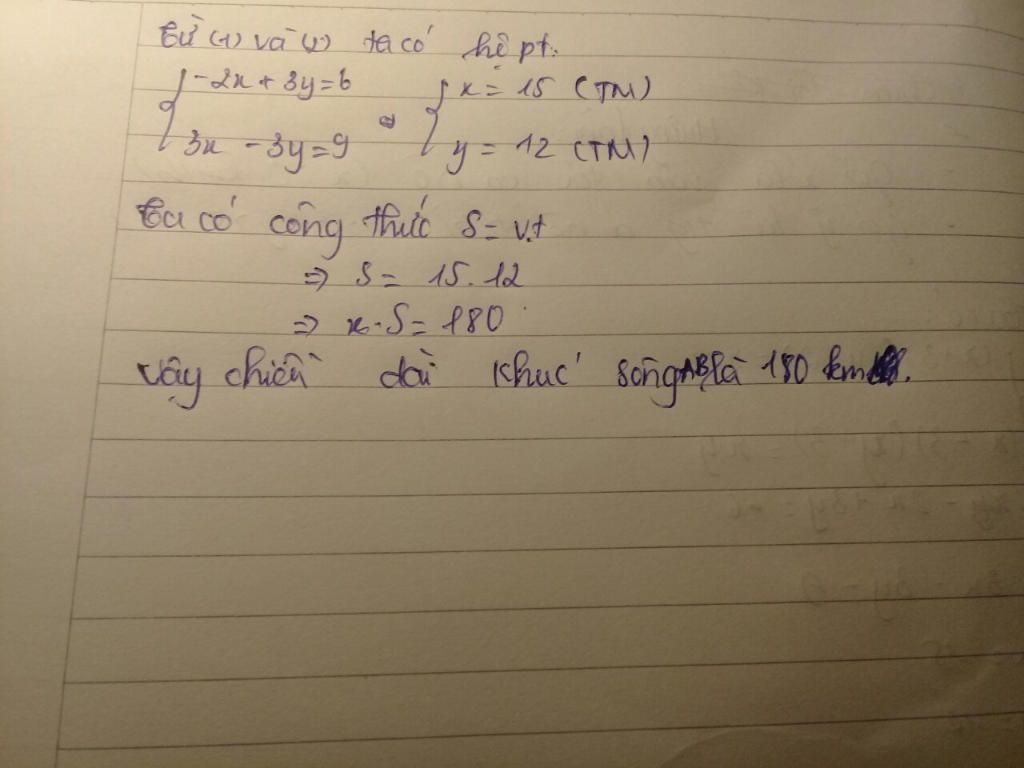 Từ (1) và (2) ta có hệ pt:
{ -2x + 3y = 6 ⇔ { x = 15 (TM)
3x - 3y = 9 y = 12 (TM)
Ta có công thức S = v.t
⇒ S = 15.12
⇒ x. S = 180
Vậy chiều dài khúc sông AB là 180 km.